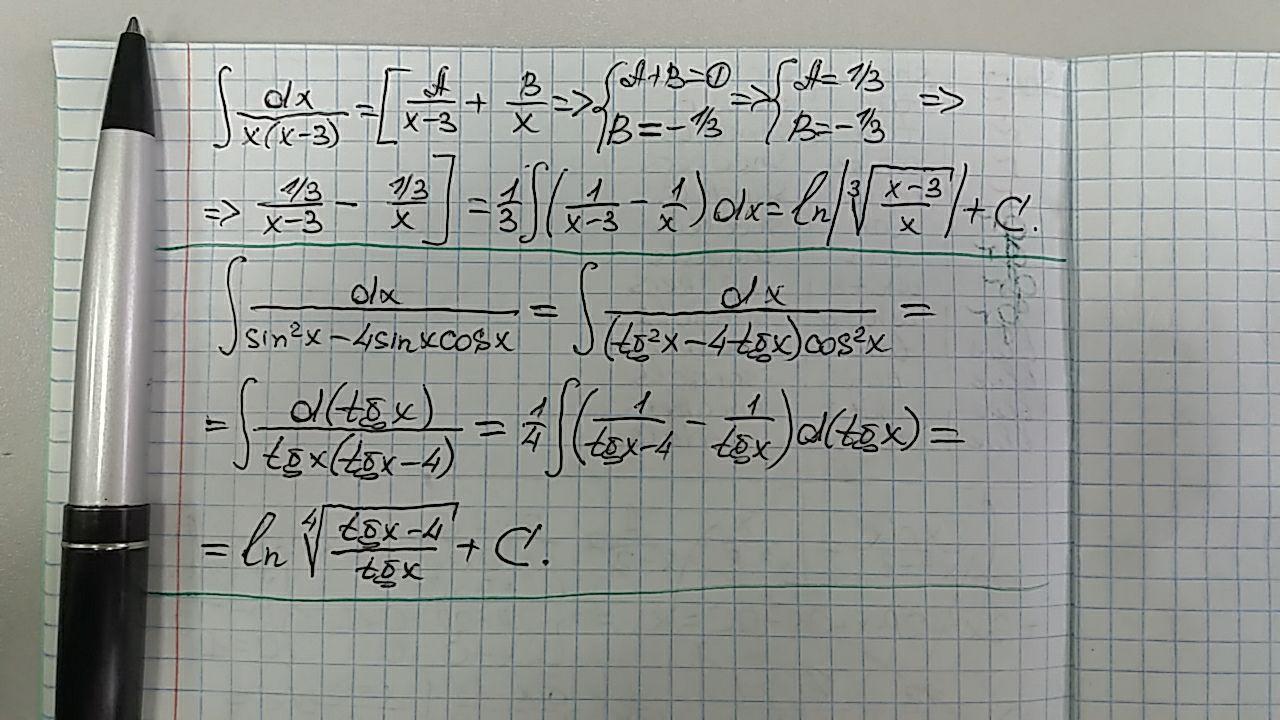 ∫ dx/(x(x-3)) = [ A/(x-3) + B/x => { A+B=0 B=-1/3 => { A=1/3 B=-1/3 =>
=> (1/3)/(x-3) - (1/3)/x ] = 1/3 ∫ (1/(x-3) - 1/x) dx = ln|∛((x-3)/x)| + C.
∫ dx/(sin²x-4sinxcosx) = ∫ dx/((tg²x-4tgx)cos²x) =
= ∫ d(tgx)/(tgx(tgx-4)) = 1/4 ∫ (1/(tgx-4) - 1/tgx) d(tgx) =
= ln ∜((tgx-4)/tgx) + C.